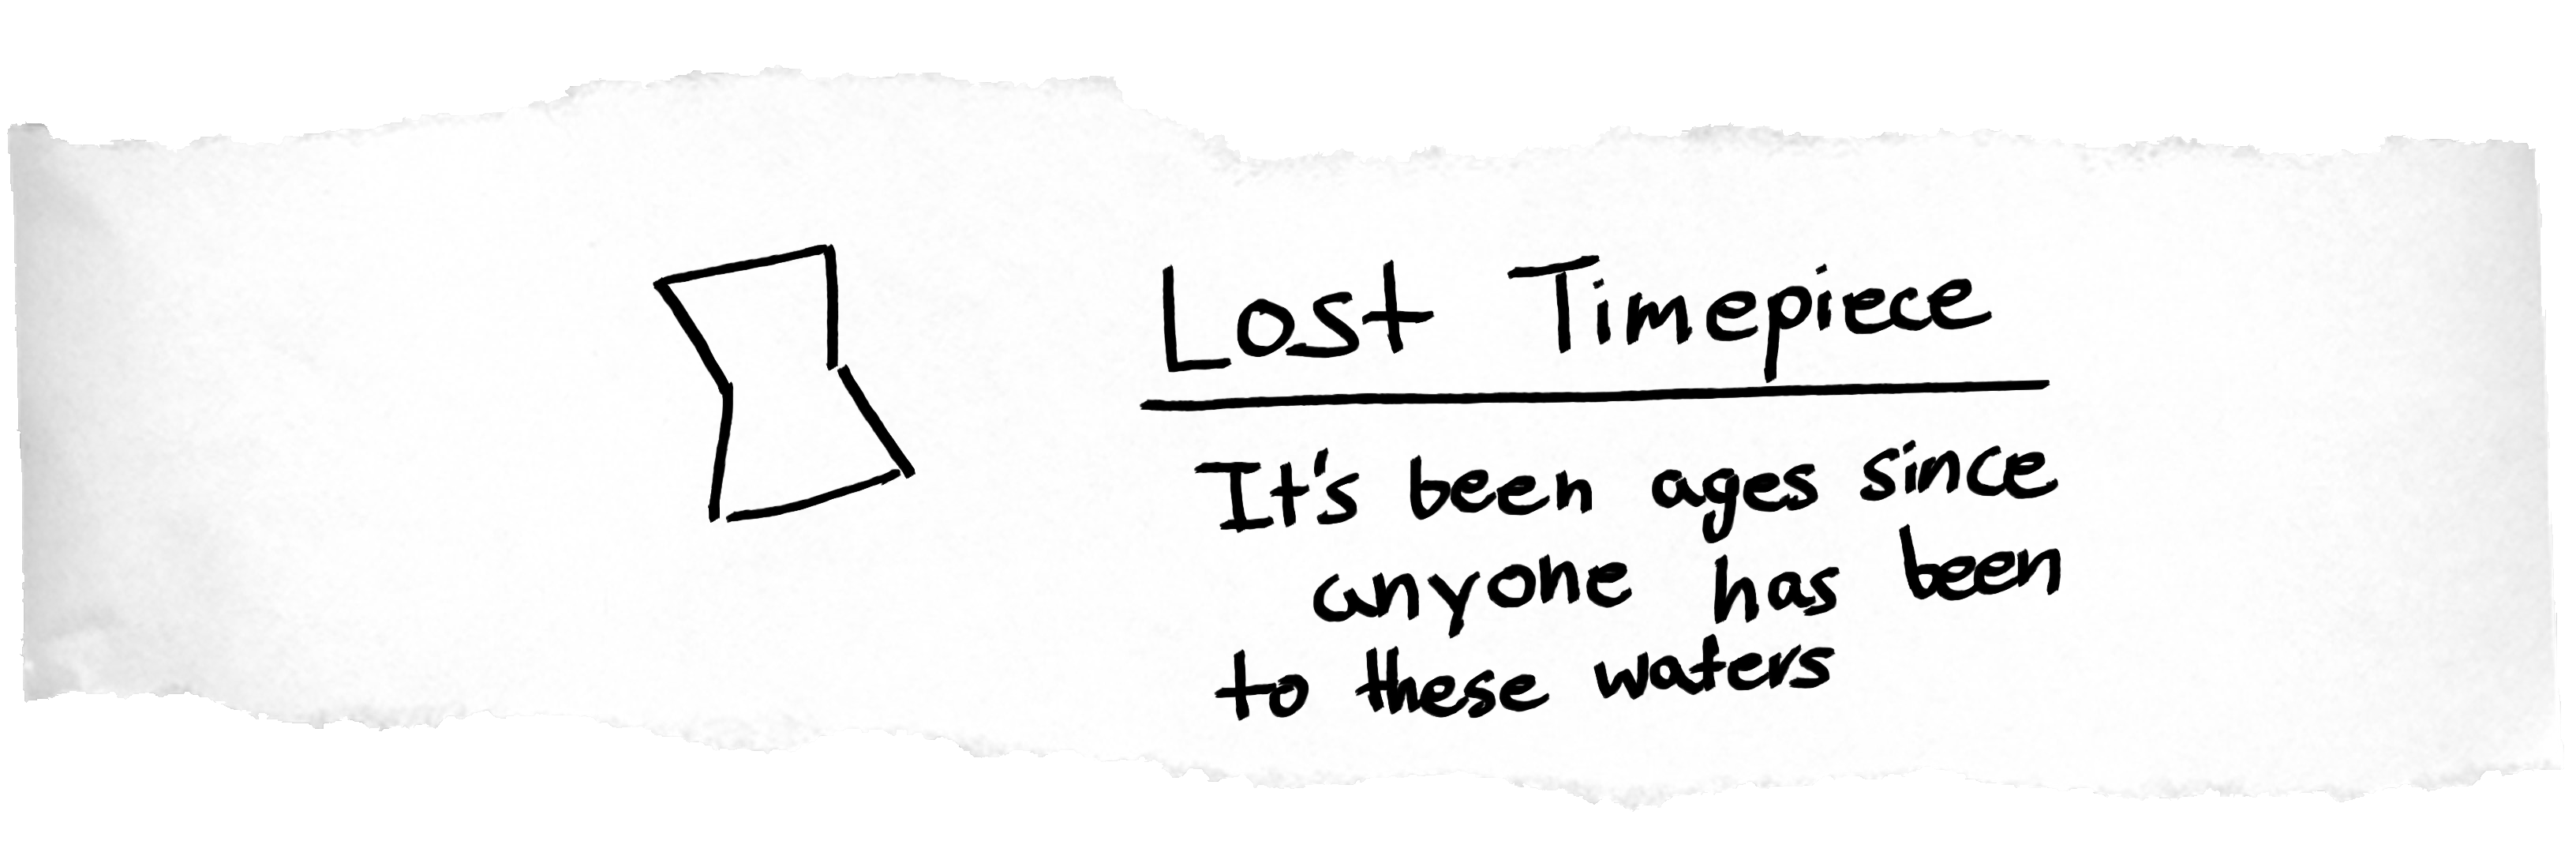 Lost Timepiece
It's been ages since
anyone has been
to these waters